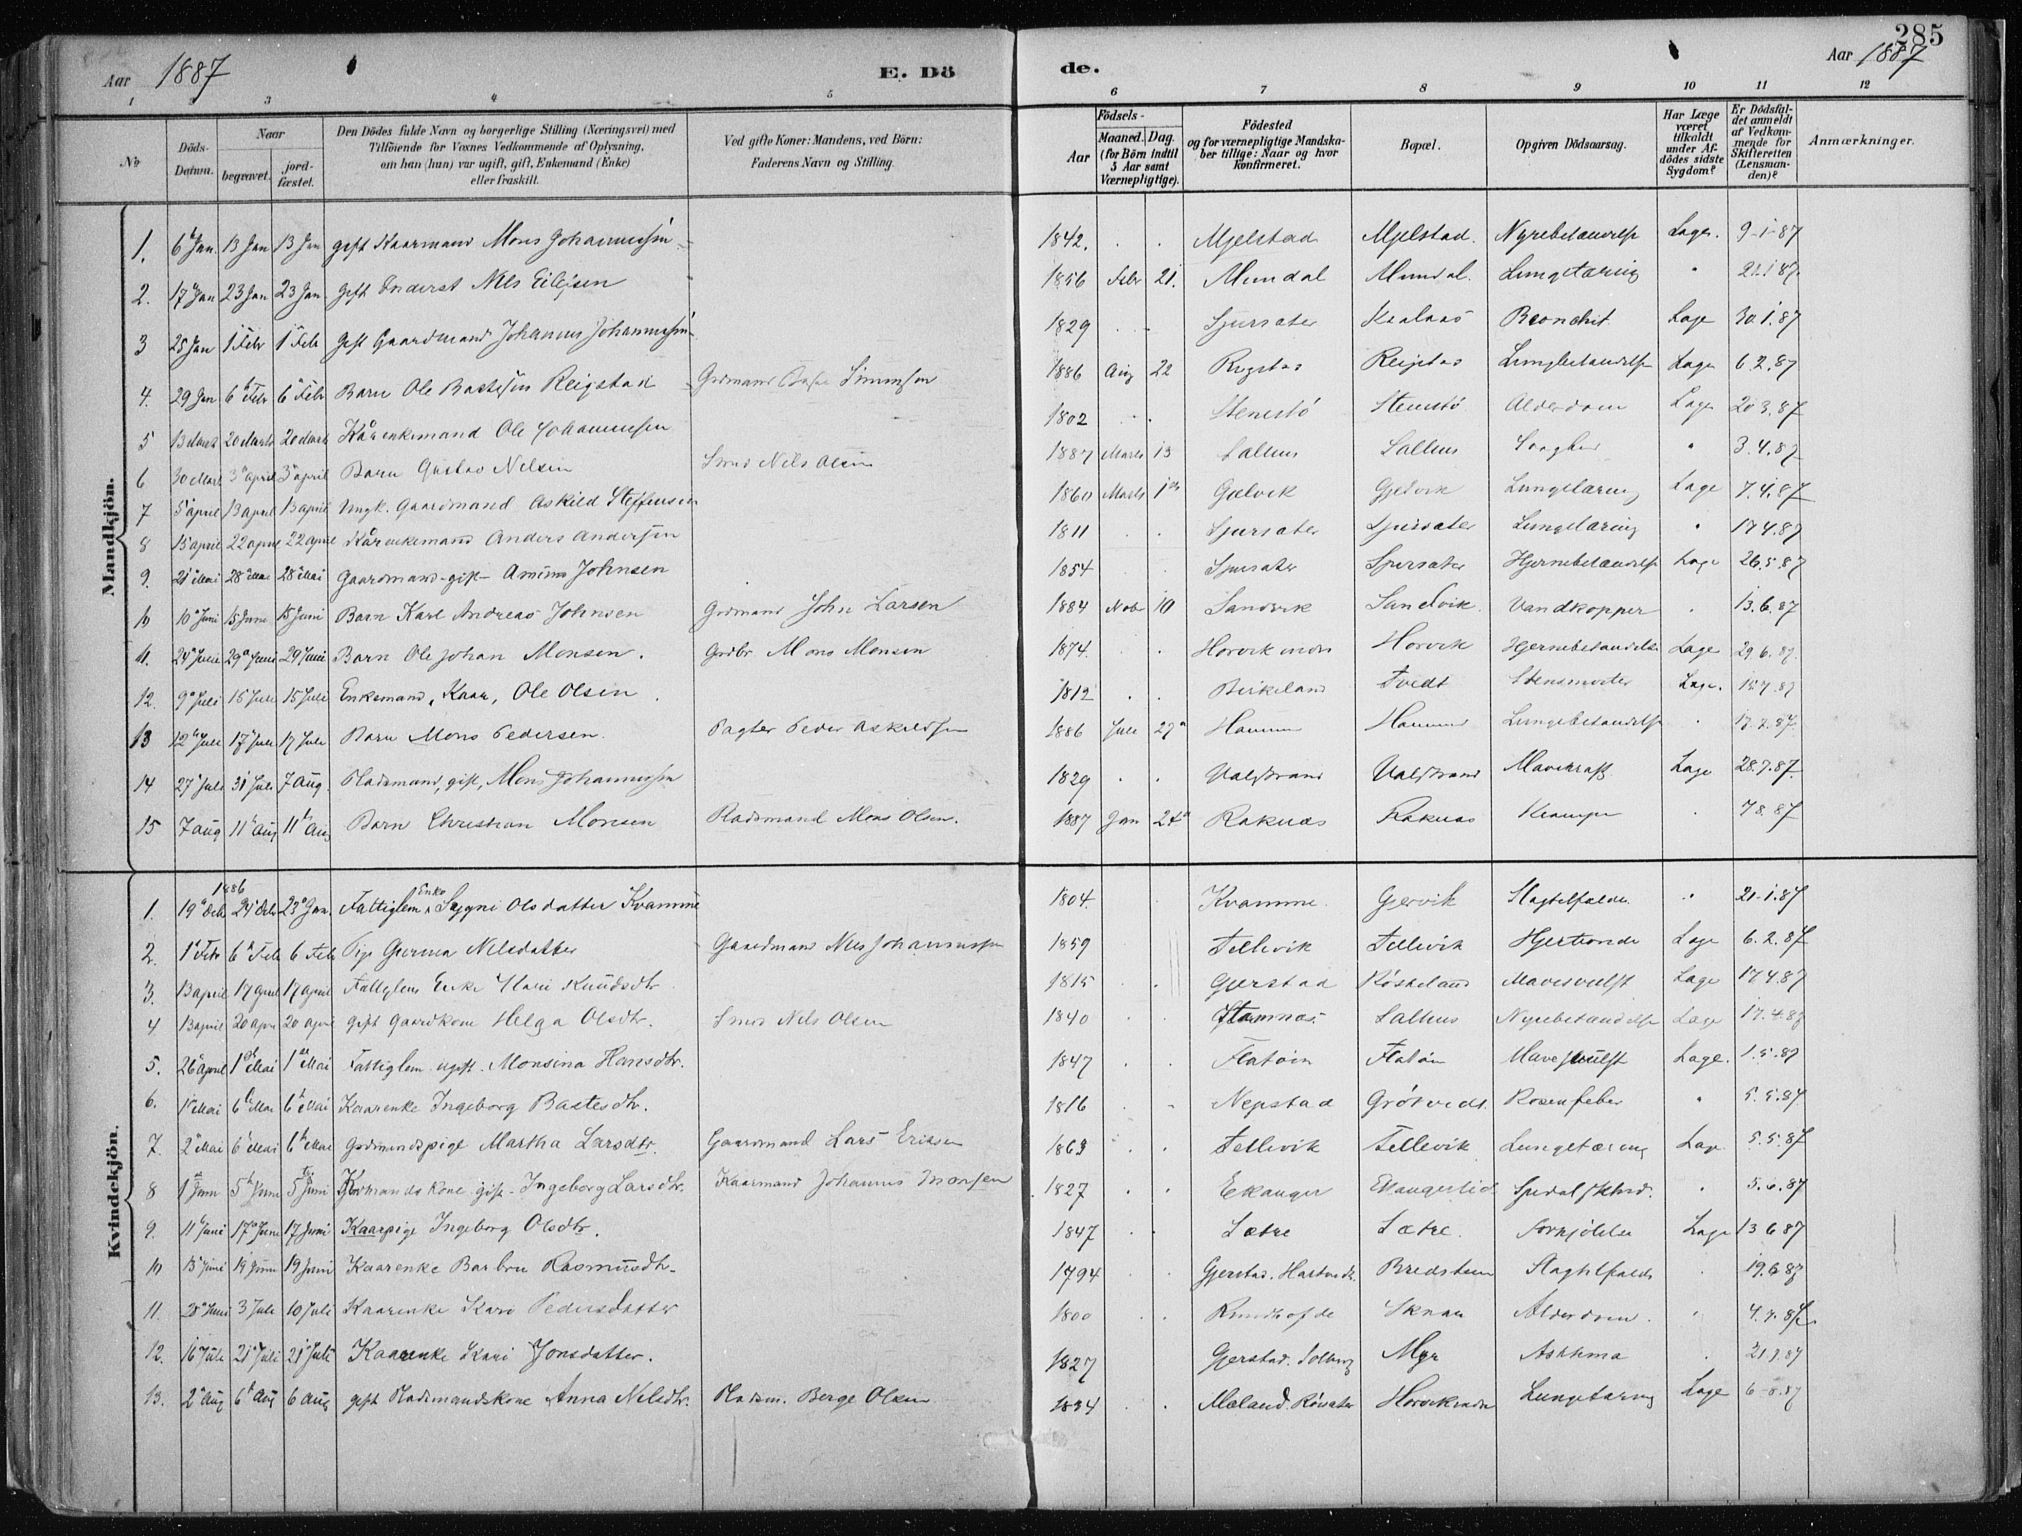 285
Aar 1887
E. Dö
de.
Aar 1887
1 2 3 4 5 6 7 8 9 10 11 12
No
Döds-Datum.
Naar
begravet.
jord-fæstet.
Den Dödes fulde Navn og borgerlige Stilling (Næringsvei) med
Tilföiende for Voxnes Vedkommende af Oplysning,
om han (hun) var ugift, gift, Enkemand (Enke)
eller fraskilt.
Ved gifte Koner: Mandens, ved Börn:
Faderens Navn og Stilling.
Födsels-
Aar
Maaned. Dag.
(for Börn indtil
5 Aar samt
Værnepligtige).
Födested
og for værnepligtige Mandska-
ber tillige: Naar og hvor
konfirmeret.
Bopæl.
Opgiven Dödsaarsag.
Har Læge
været
tilkaldt
under Af-
dödes sidste
Sygdom?
Er Dödsfal-
det anmeldt
af Vedkom-
mende for
Skifteretten
(Lensman-
den)?
Anmærkninger.
Mandkjön.
1. 6 Jan 13 Jan 13 Jan gift Kaarmand Mons Johannessen 1842 Mjelstad Mjelstad. Nyrebetændelse Læge. 9-1-87
2. 17 Jan 23 Jan 23 Jan gift Inderst Nils 1856 Febr 21. Mundal Mundal. Lungetæring " 21.1.87
3 25 Jan 1 Febr 1 Febr Gift Gaardmand Johannes Johannessen 1829 Sjursæter Bronchit Læge 30.1.87
4. 29 Jan 6 Febr 6 Febr Barn Ole Reigstad Grdmand Simonsen 1886 Aug 22 Reigstad Reigstad Lungebetændelse Læge 6.2.87
5 13 Marts 20 Marts 20 Marts Kårenkemand Ole Johannessen 1802 Stenstö Stenstö Alderdom Læge 20.3.87
6 30 Marts 3 april 3 april Barn Gustav Nelsen Smed Nils Olsen 1887 Marts 13 Salhus Salhus " 3.4.87
7 5 april 13 april 13 april Ungk. Gaardmand Askild Steffensen 1860 Marts Gjelvik Lungetæring Læge 7.4.87
8 15 april 22 april 22 april Kårenkemand Anders Andersen 1811 Sjursæter Sjursæter Lungetæring " 17.4.87
9. 21 Mai 28 Mai 28 Mai Gaardmand gift Johnsen 1854 Sjursæter Sjursæter Hjernebetændelse Læge 26.5.87
10 10 Juni 15 Juni 15 Juni Barn Karl Andreas Johnsen Grdmand John Larsen 1884 Nov 10 Sandvik Sandvik. Vandkopper 13.6.87
11. 24 Juni 29 Juni 29 Juni Barn Ole Johan Monsen. Grdbr Mons Monsen 1874. Horvik Hjernebetændelse Læge 29.6.87.
12. 9 Juli 15 Juli 15 Juli Enkemand, Kaar, Ole Olsen 1812 Birkeland Tvedt Læge. 15.7.87
13 12 Juli 17 Juli 17 Juli Barn Mons Pedersen. Pagter Peder Askildsen 1886 Juli 27 Hammer Lungebetændelse 17.7.87.
14 27 Juli 31 Juli 7 Aug. Pladsmand, gift, Mons Johannessen 1829 Valestrand Valestrand Mavekræft Læge 28.7.87.
15 7 aug 11 Aug 11 Aug Barn Christian Monsen Pladsmand Mons Olsen. 1887 Jan 24 Raknæs Raknæs Krampe 7.8.87
Kvindekjön.
1. 1886 19 Decb 24 Decb 23 Jan. Fattiglem Enke Olsdatter Kvamme 1804. Kvamme Gjervik Slagtilfælde " 21-1.87
2. 1 Febr 6 Feb 6 Feb Pige Nelsdatter Gaardmand Nils Johannessen 1859 Tellevik Tellevik Hjerteonde Læge 6.2.87
3. 13 april 17 april 17 april Fattiglem Enke Knudsdtr 1815 Gjerstad Röskeland Mavesvulst Læge 17.4.87
4 13 april 20 april 20 april gift Gaardkone Helga Olsdtr. Smed Nils Olsen 1840 Stamnes Salhus Nyrebetændelse Læge 17.4.87
5. 26 april 1 Mai 1 Mai Fattiglem ugift. Monsina Hansdtr. 1847 Flatöen Flatöen Mavesvulst Læge. 1.5.87
6. 1 Mai 6 Mai 6 Mai Kaarenke Ingeborg Bastesdtr. 1816 Nepstad Grötvedt. Rosenfeber " 5.5.87
7. 2 Mai 6 Mai 6 Mai Grdmandspige Martha Larsdtr. Gaardmand Lars Eriksen 1863 Tellevik Tellevik Lungetæring Læge 5.5.87
8 1 Juni 5 Juni 5 Juni Kone gift Ingeborg Larsdtr. Kaarmand Johannes Monsen 1827 Ekanger " 5.6.87
9. 11 Juni 17 Juni 17 Juni Kaarpige Ingeborg Olsdtr. 1847 Sætre Sætre. Forkjölelse Læge 13.6.87
10 13 Juni 19 Juni 19 Juni Kaarenke Barbru Rasmusdtr. 1794 Gjerstad. Bredsteen Slagtilfælde 19.6.87
11. 28 Juni 3 Juli 10 Juli Kaarenke Kari Pedersdatter 1800 Alderdom. " 4.7.87.
12. 16 Juli 21 Juli 21 Juli Kaarenke Kari Jonsdatter. 1827 Gjerstad. Myr Asthma 21.7.87
13. 2 Aug 6 Aug 6 Aug gift Pladsmandskone Anna Nilsdtr. Pladsm. Berge Olsen 1834 Mæland. Lungetæring Læge 6-8.87